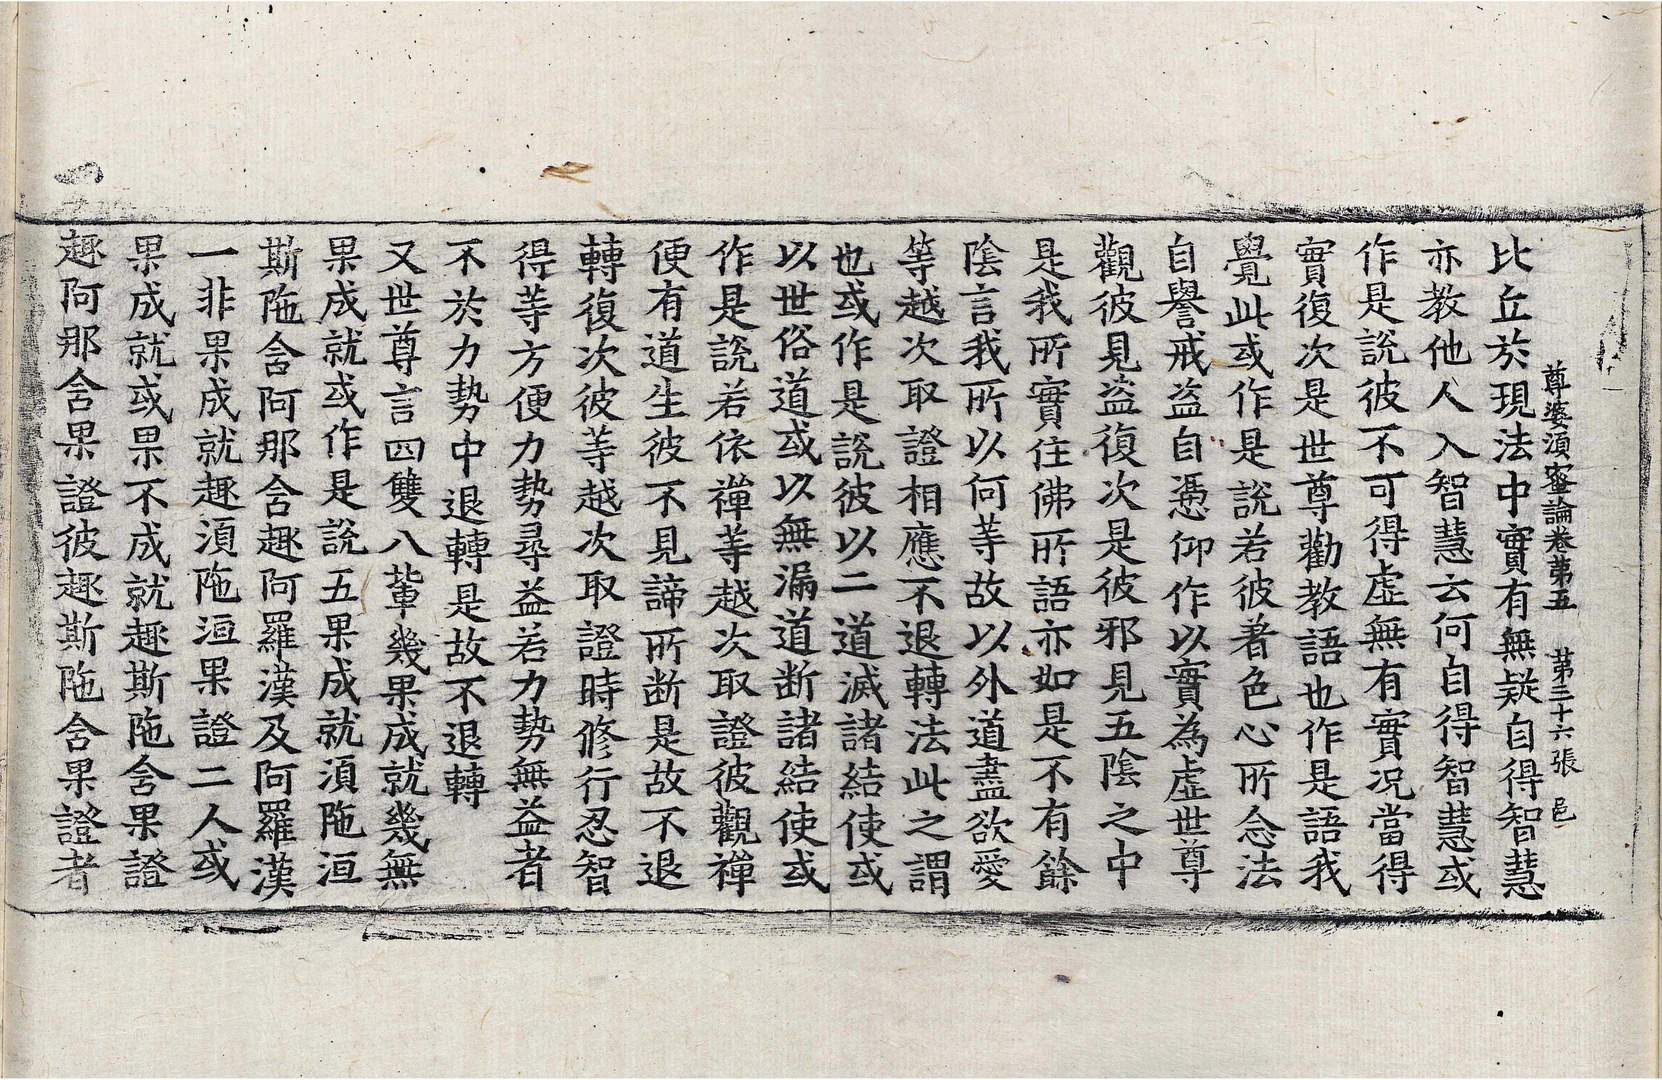 尊婆湏蜜論卷第五 第三十六張 邑
比丘於現法中實有無疑自得智慧
亦教他人入智慧云何自得智慧或
作是說彼不可得虛無有實况當得
實復次是世尊勸教語也作是語我
覺此或作是說若彼著色心所念法
自譽戒盜自憑仰作以實為虛世尊
觀彼見盜復次是彼邪見五陰之中
是我所實住佛所語亦如是不有餘
陰言我所以何等故以外道盡欲愛
等越次取證相應不退轉法此之謂
也或作是說彼以二道滅諸結使或
以世俗道或以無漏道断諸結使或
作是說若依禪等越次取證彼觀禪
便有道生彼不見諦所断是故不退
轉復次彼等越次取證時修行忍智
得等方便力勢尋益若力勢無益者
不於力勢中退轉是故不退轉
又世尊言四雙八軰幾果成就幾無
果成就或作是說五果成就湏陁洹
斯陁含阿那含趣阿羅漢及阿羅漢
一非果成就趣湏陁洹果證二人或
果成就或果不成就趣斯陁含果證
趣阿那含果證彼趣斯陁含果證者